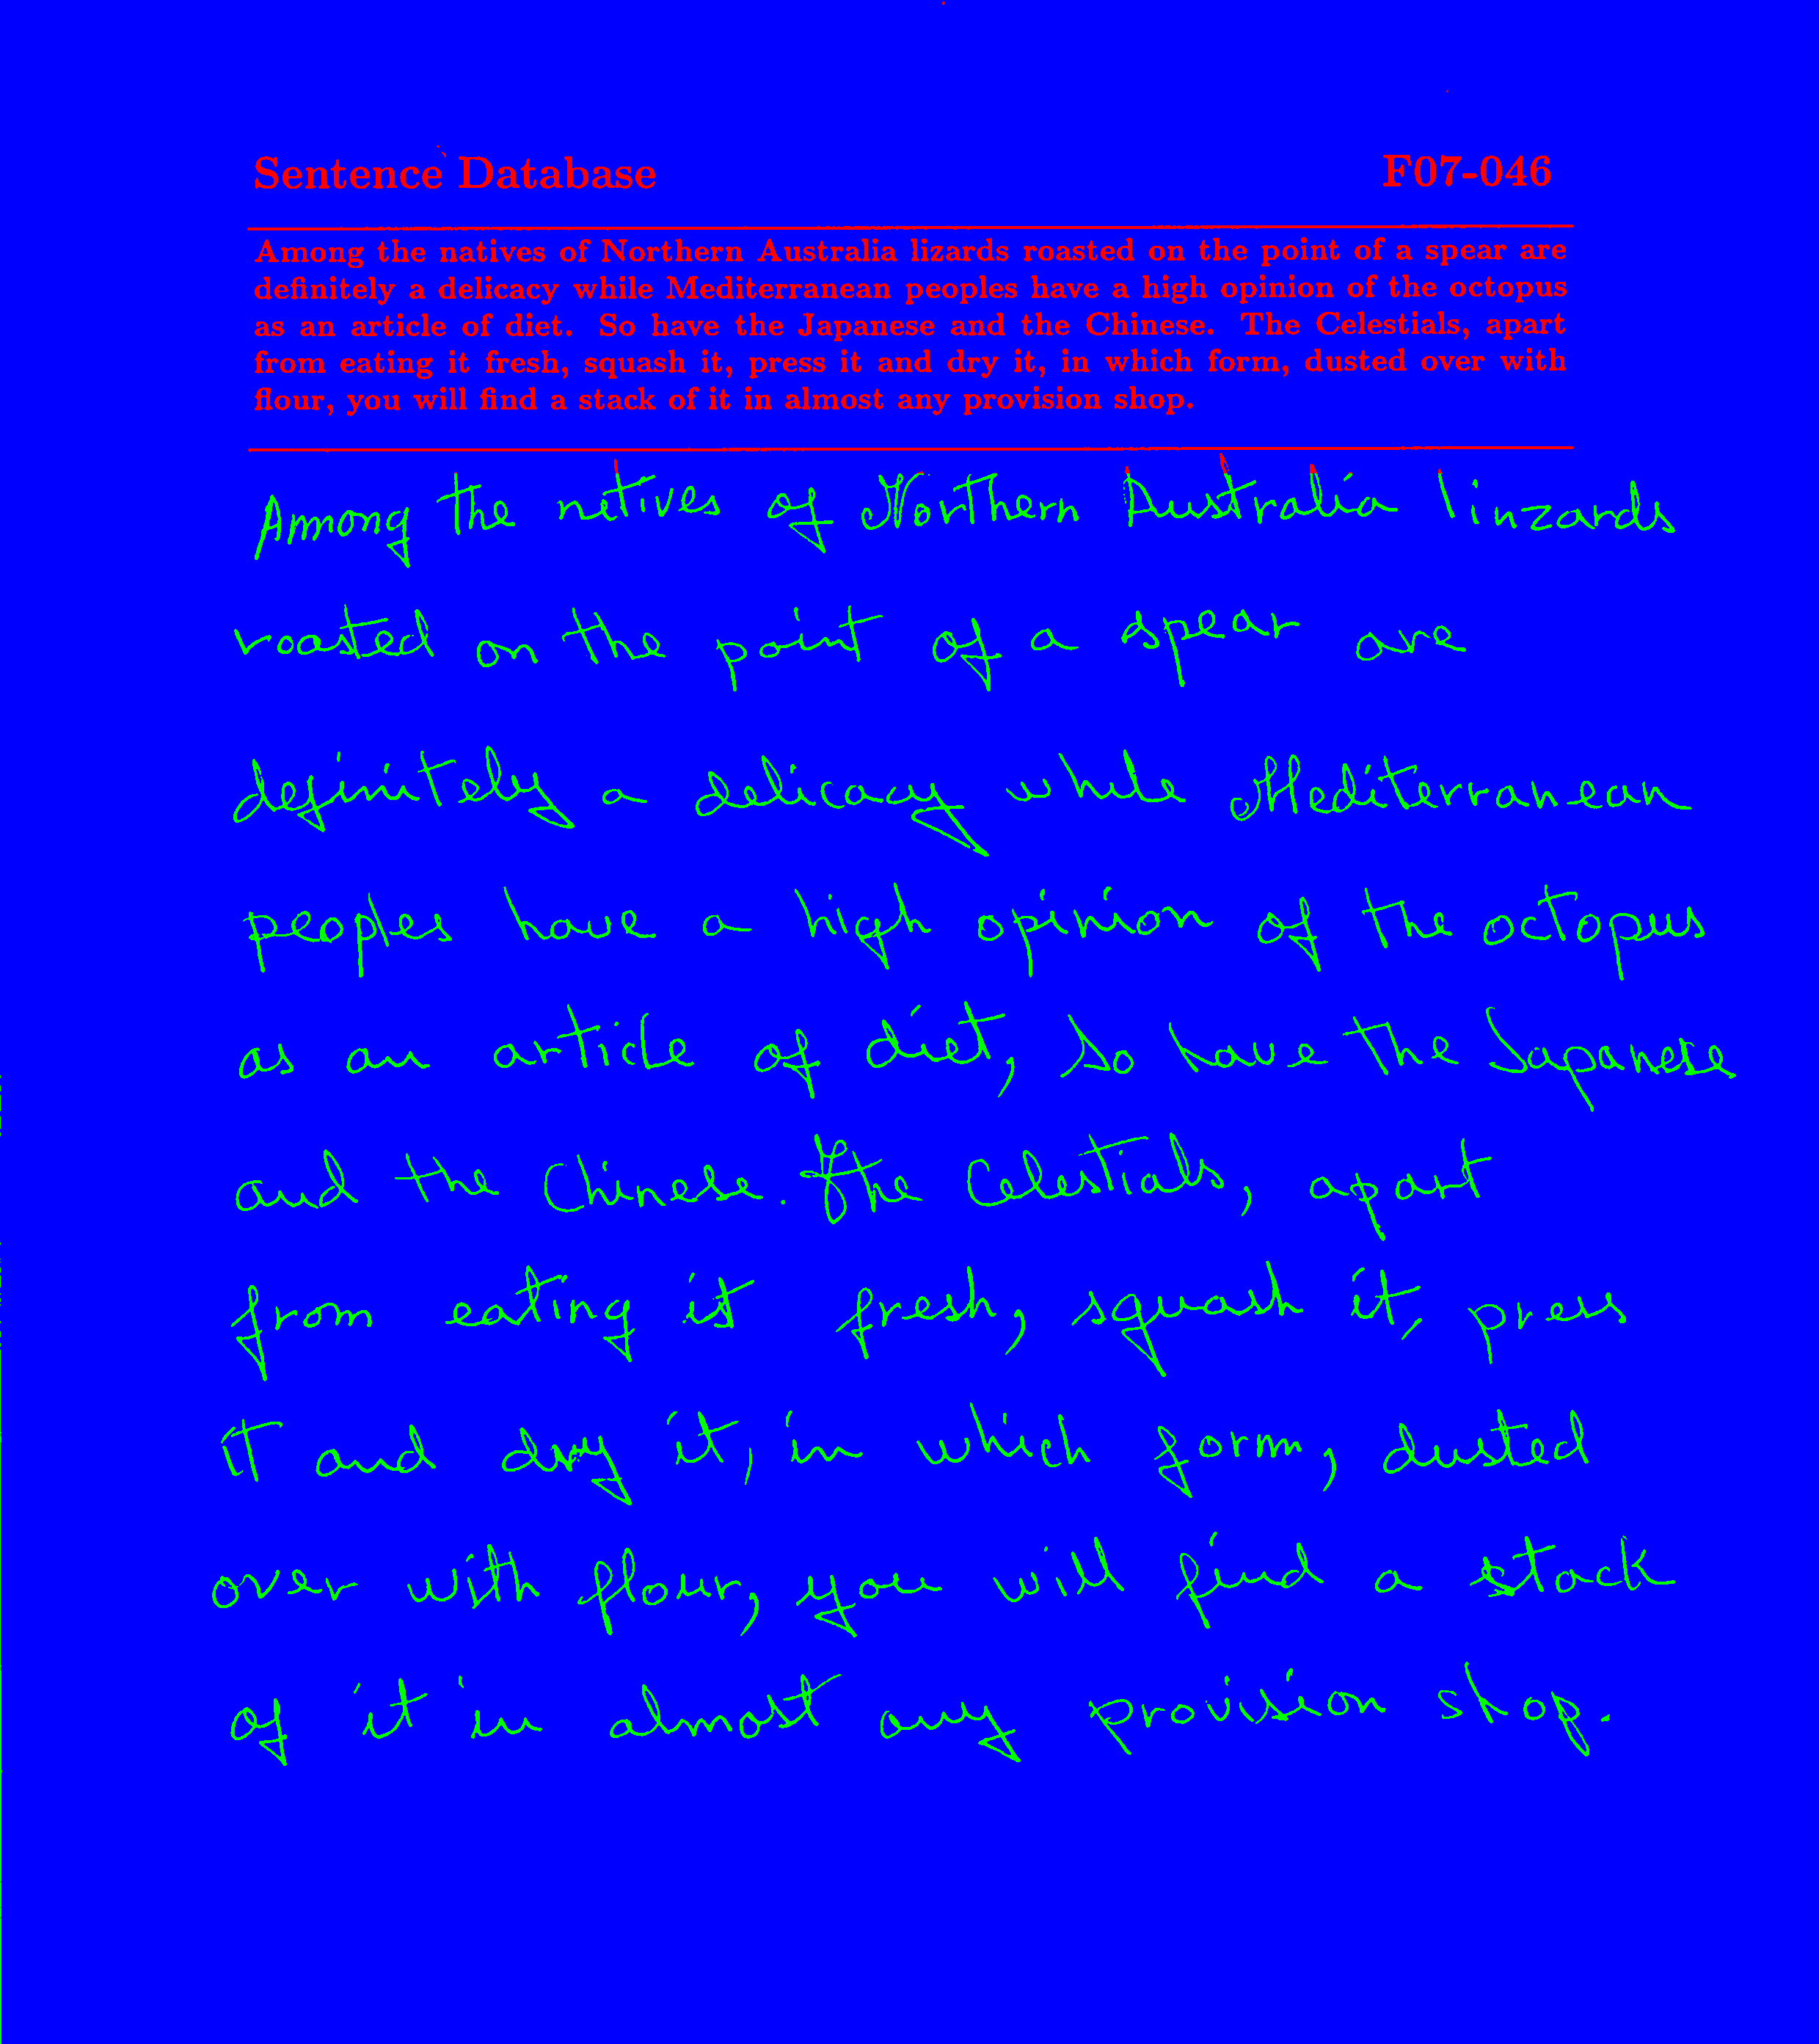 Sentence Database F07-046
Among the natives of Northern Australia lizards roasted on the point of a spear are
definitely a delicacy while Mediterranean peoples have a high opinion of the octopus
as an article of diet. So have the Japanese and the Chinese. The Celestials, apart
from eating it fresh, squash it, press it and dry it, in which form, dusted over with
flour, you will find a stack of it in almost any provision shop.
Among the netives of Northern Australia linzards
roasted on the point of a spear are
definitely a delicacy while Mediterranean
peoples have a high opinion of the octopus
as an article of diet, so have the Japanese
and the Chinese. The Celestials, apart
from eating it fresh, squash it, press
it and dry it, in which form, dusted
over with flour, you will find a stack
of it in almost any provision shop.